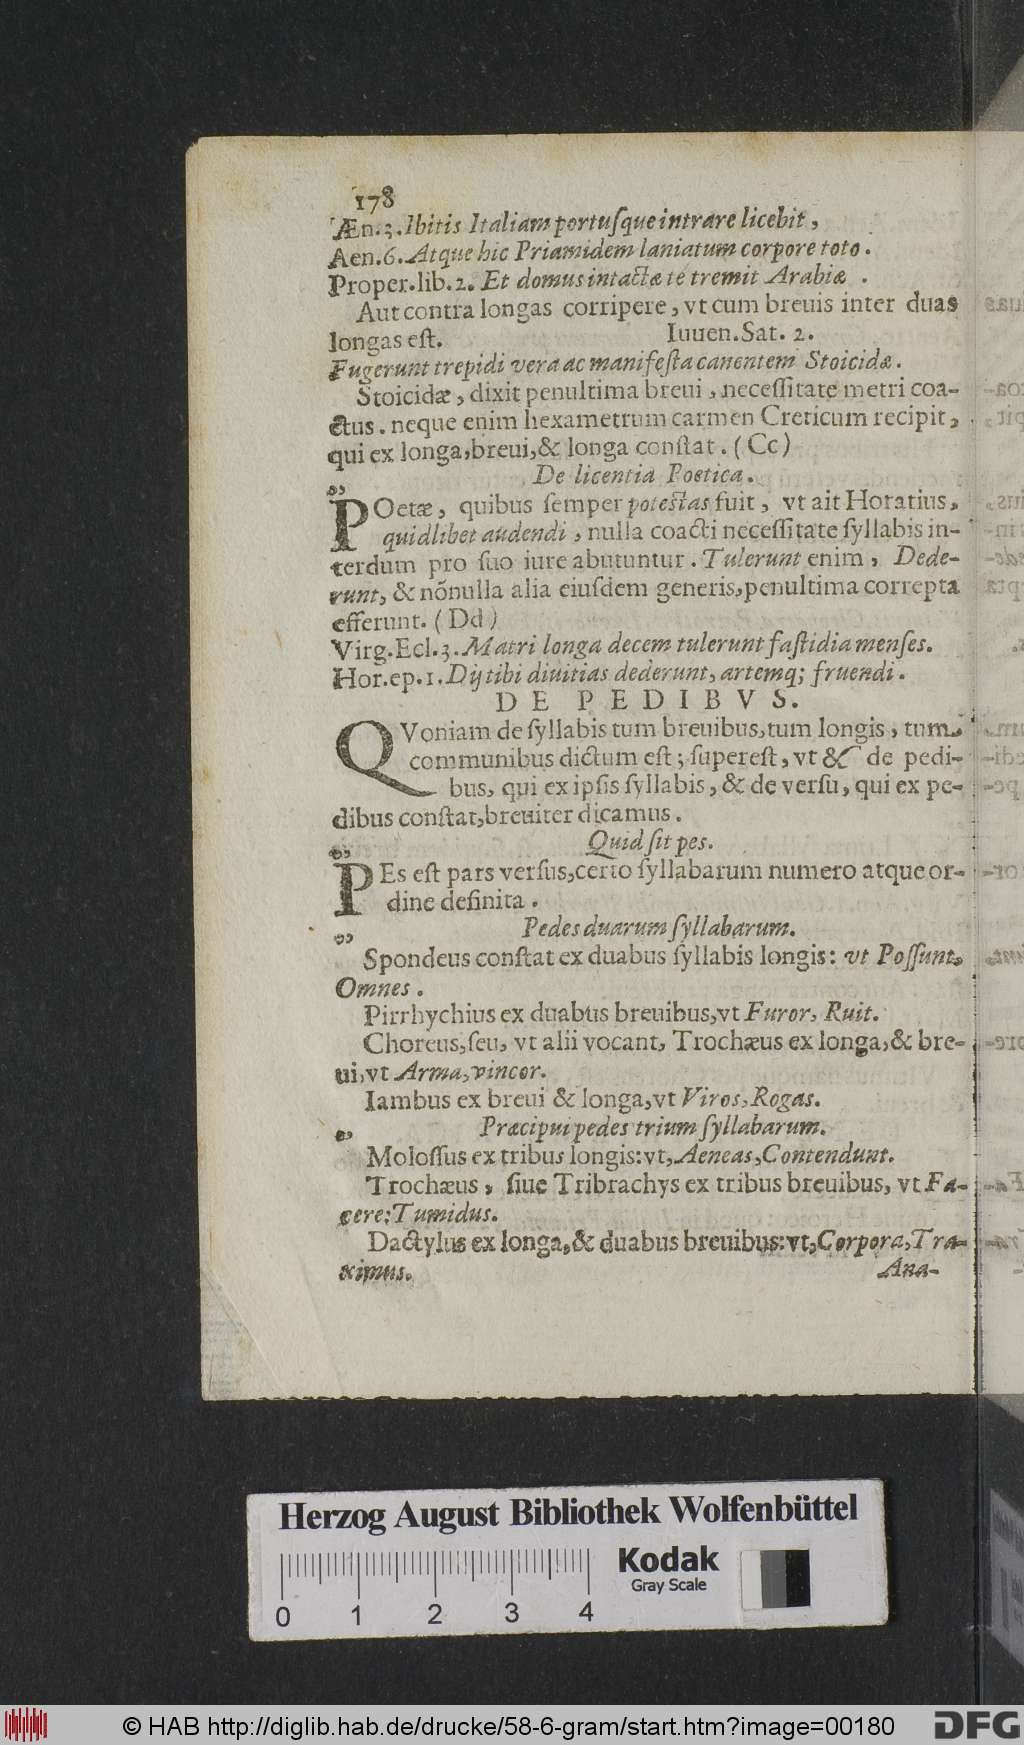 178
Æn.3. Ibitis Italiam portuſque intrare licebit,
Aen.6. Atque hic Priamidem laniatum corpore toto.
Proper.lib.2. Et domus intactæ te tremit Arabiæ .
Aut contra longas corripere, vt cum breuis inter duas
longas eſt. Iuuen.Sat. 2.
Fugerunt trepidi vera ac manifeſta canentem Stoicidæ.
Stoicidæ, dixit penultima breui, neceſſitate metri coa-
ctus. neque enim hexametrum carmen Creticum recipit,
qui ex longa,breui,& longa conſtat. (Cc)
De licentia Poetica.
POetæ, quibus ſemper poteſtas fuit, vt ait Horatius,
quidlibet audendi, nulla coacti neceſſitate ſyllabis in-
terdum pro ſuo iure abutuntur. Tulerunt enim, Dede-
runt, & nõnulla alia eiuſdem generis,penultima correpta
efferunt. (Dd)
Virg.Ecl.3. Matri longa decem tulerunt faſtidia menſes.
Hor.ep.1. Dij tibi diuitias dederunt, artemq; fruendi.
DE PEDIBVS.
QVoniam de ſyllabis tum breuibus,tum longis, tum
communibus dictum eſt; ſupereſt, vt & de pedi-
bus, qui ex ipſis ſyllabis, & de verſu, qui ex pe-
dibus conſtat,breuiter dicamus.
Quid ſit pes.
PEs eſt pars verſus,certo ſyllabarum numero atque or-
dine definita.
Pedes duarum ſyllabarum.
Spondeus conſtat ex duabus ſyllabis longis: vt Poſſunt,
Omnes.
Pirrhychius ex duabus breuibus,vt Furor, Ruit.
Choreus,ſeu, vt alii vocant, Trochæus ex longa,& bre-
ui,vt Arma,vincor.
Iambus ex breui & longa,vt Viros,Rogas.
Præcipui pedes trium ſyllabarum.
Moloſſus ex tribus longis:vt,Aeneas,Contendunt.
Trochæus, ſiue Tribrachys ex tribus breuibus, vt Fa-
cere;Tumidus.
Dactylus ex longa,& duabus breuibus:vt,Corpora,Tra-
ximus. Ana-
Herzog August Bibliothek Wolfenbüttel
Kodak
Gray Scale
0 1 2 3 4
© HAB http://diglib.hab.de/drucke/58-6-gram/start.htm?image=00180
DFG